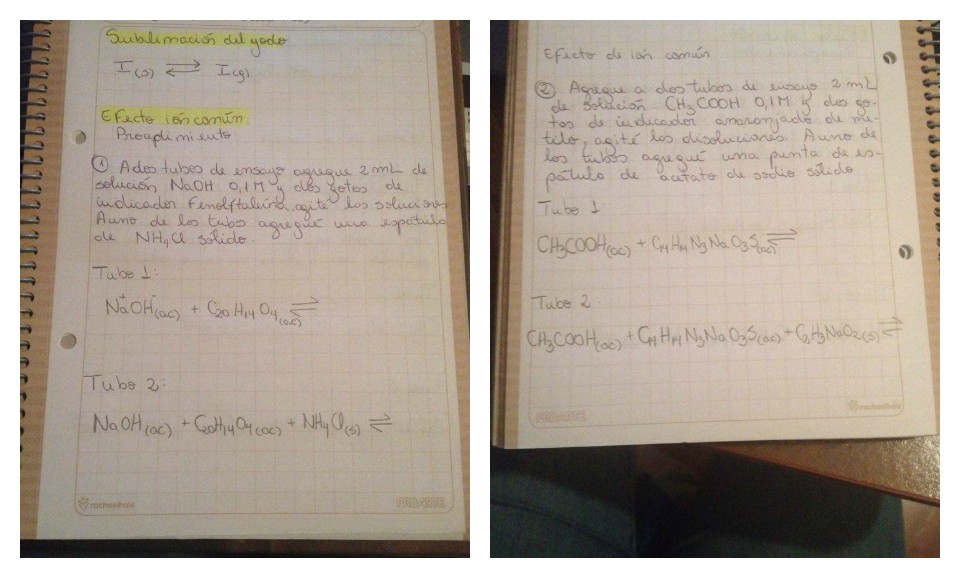 Sublimación del yodo
I(s) ⇌ I(g)
Efecto ión común.
Procedimiento
① A dos tubos de ensayo agregue 2 mL de
solución NaOH 0,1M y dos gotas de
indicador Fenolftaleina, agité las soluciones
A uno de los tubos agregué una espátula
de NH4Cl sólido.
Tubo 1:
Na+OH-(ac) + C20H14O4(ac) ⇌
Tubo 2:
NaOH(ac) + C20H14O4(ac) + NH4Cl(s) ⇌
rockaalhole
PROARTE
Efecto de ión común
② Agregue a dos tubos de ensayo 2 mL
de solución CH3COOH 0,1M y dos go-
tas de indicador anaranjado de me-
tilo, agité las disoluciones. A uno de
los tubos agregué una punta de es-
pátula de acetato de sodio sólido
Tubo 1
CH3COOH(ac) + C14H14N3NaO3S(ac) ⇌
Tubo 2
CH3COOH(ac) + C14H14N3NaO3S(ac) + C2H3NaO2(s) ⇌
PROARTE